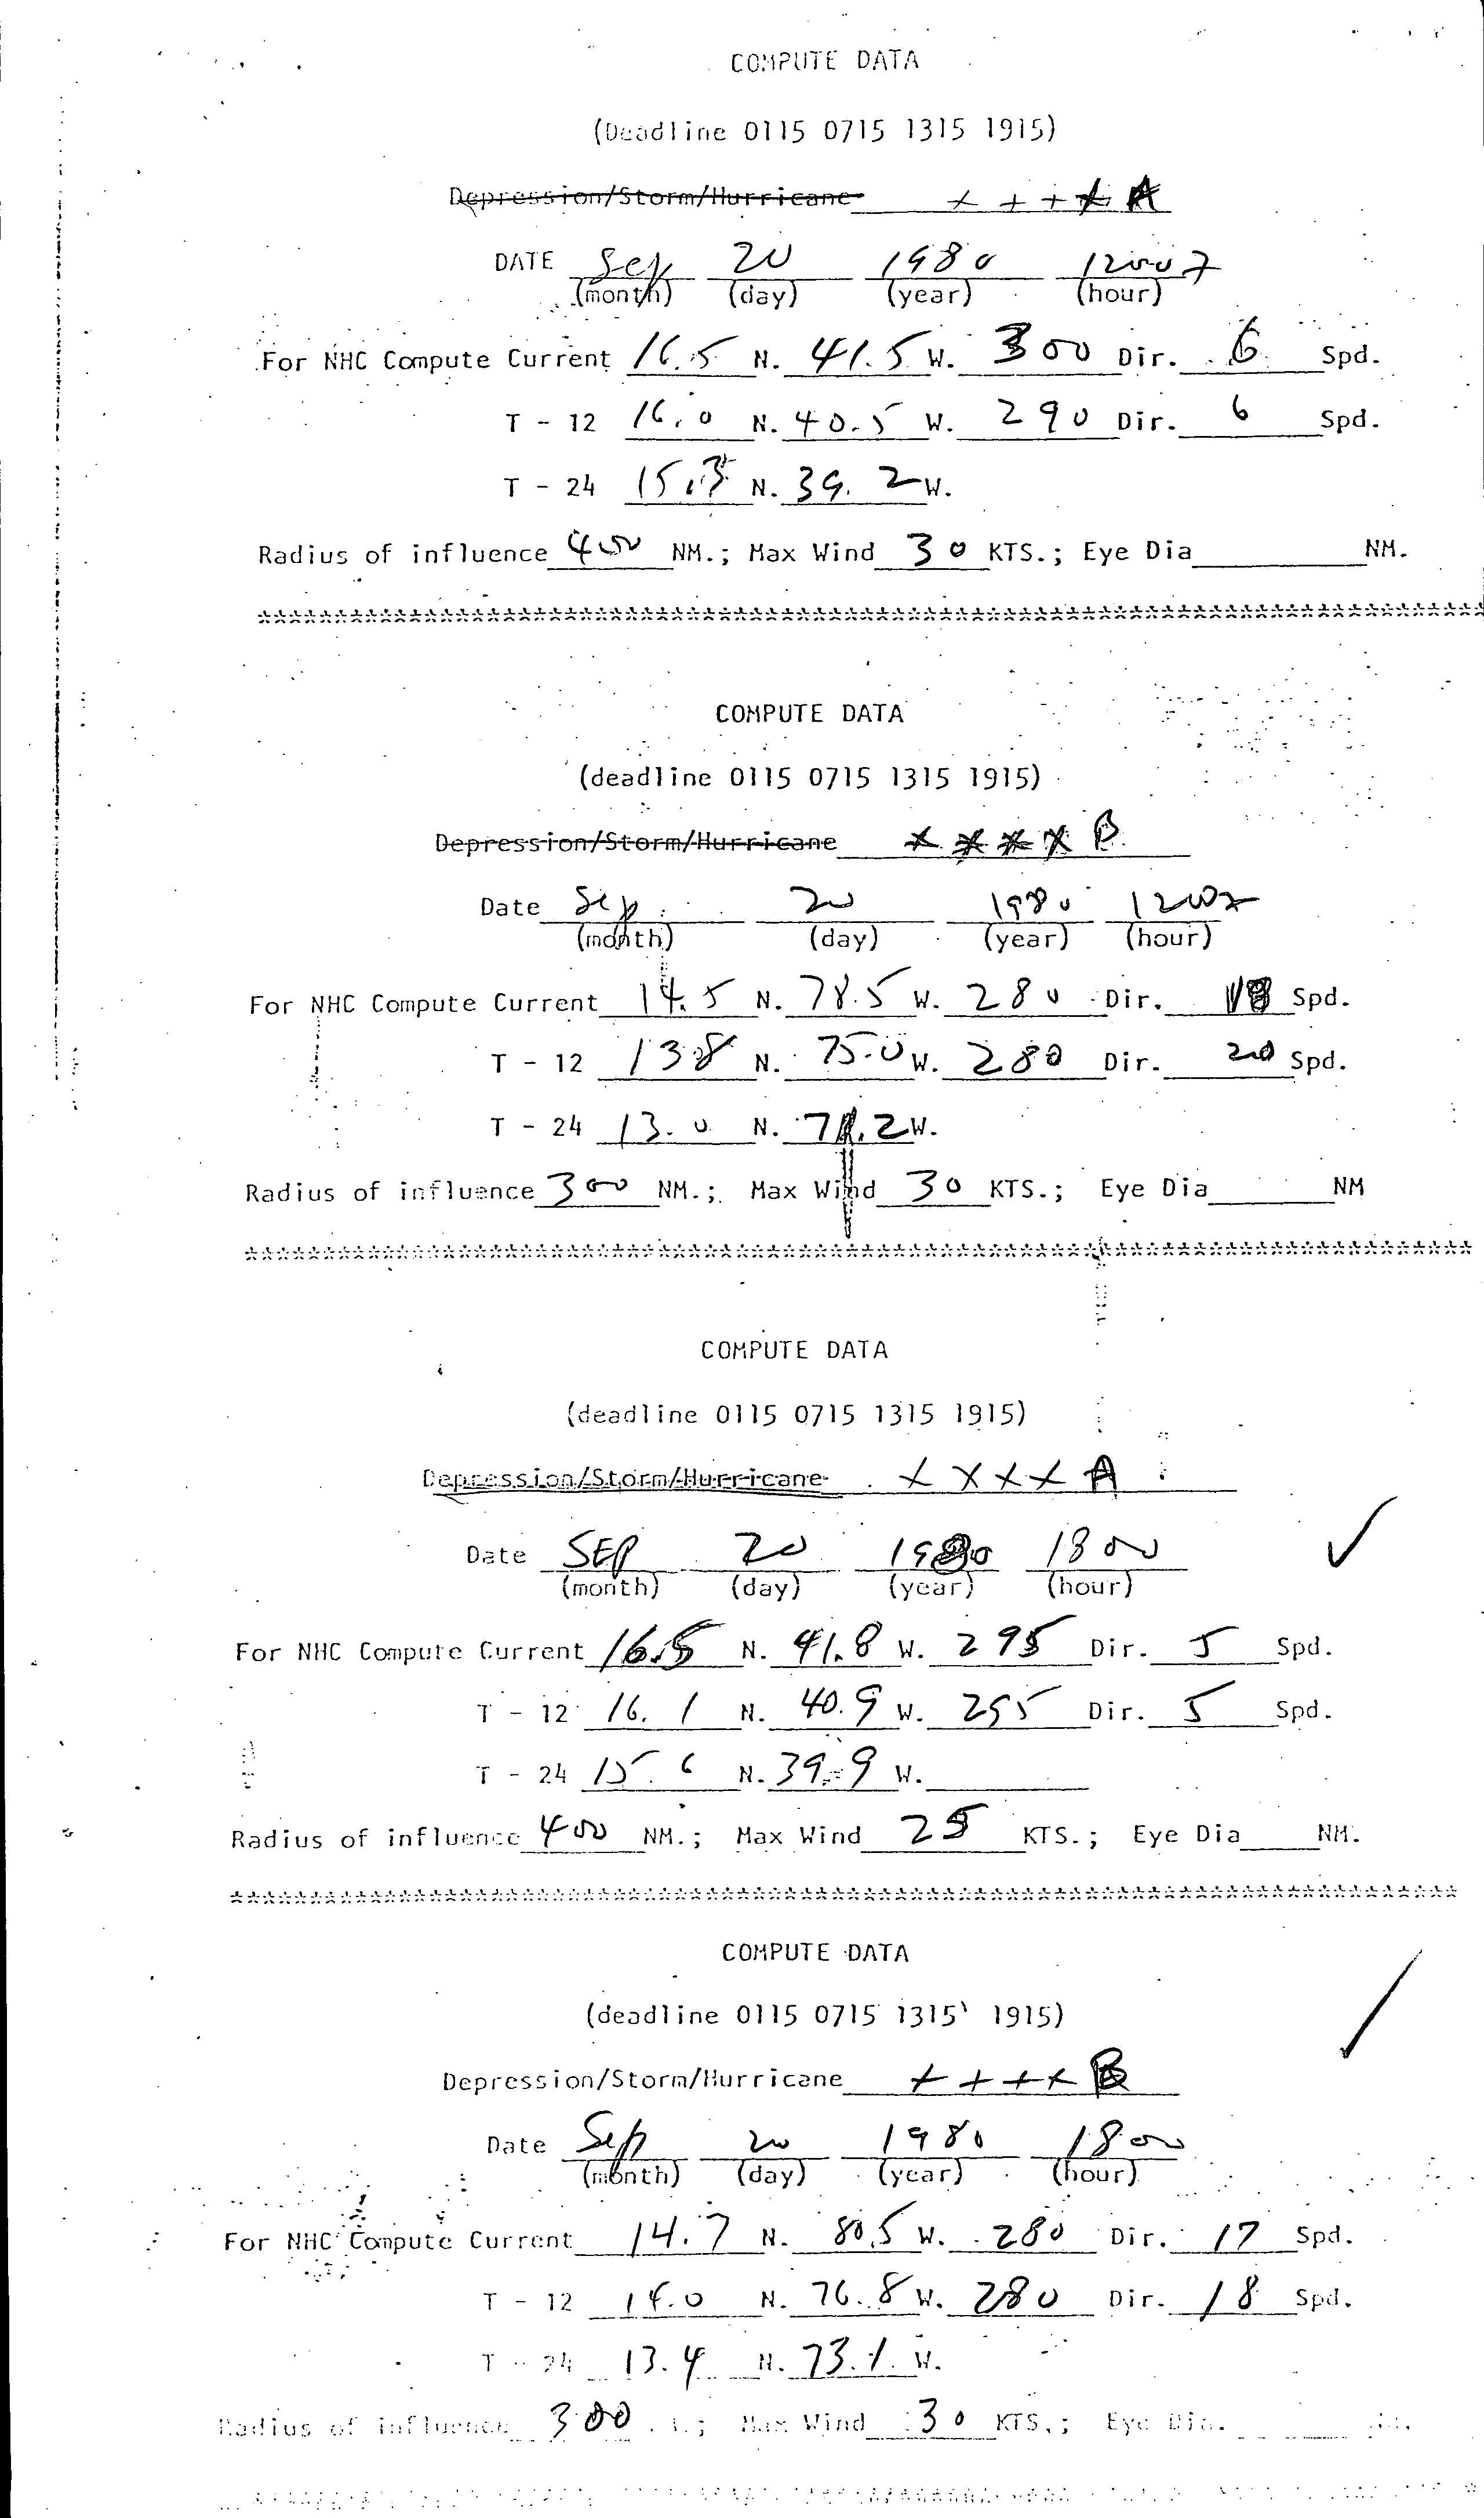 COMPUTE DATA
(Deadline 0115 0715 1315 1915)
Depression/Storm/Hurricane + + + + A
DATE Sep 20 1980 1200Z
(month) (day) (year) (hour)
For NHC Compute Current 16.5 N. 41.5 W. 300 Dir. 6 Spd.
T - 12 16.0 N. 40.5 W. 290 Dir. 6 Spd.
T - 24 15.3 N. 39.2 W.
Radius of influence 400 NM.; Max Wind 30 KTS.; Eye Dia NM.
COMPUTE DATA
(deadline 0115 0715 1315 1915)
Depression/Storm/Hurricane X X X X B
Date Sep 20 1980 1200Z
(month) (day) (year) (hour)
For NHC Compute Current 14.5 N. 78.5 W. 280 Dir. 18 Spd.
T - 12 13.8 N. 75.0 W. 280 Dir. 20 Spd.
T - 24 13.0 N. 71.2 W.
Radius of influence 300 NM.; Max Wind 30 KTS.; Eye Dia NM
COMPUTE DATA
(deadline 0115 0715 1315 1915)
Depression/Storm/Hurricane X X X X A
Date SEP 20 1980 1800
(month) (day) (year) (hour)
For NHC Compute Current 16.5 N. 41.8 W. 295 Dir. 5 Spd.
T - 12 16.1 N. 40.9 W. 295 Dir. 5 Spd.
T - 24 15.6 N. 39.9 W.
Radius of influence 400 NM.; Max Wind 25 KTS.; Eye Dia NM.
COMPUTE DATA
(deadline 0115 0715 1315 1915)
Depression/Storm/Hurricane + + + + B
Date Sep 20 1980 1800
(month) (day) (year) (hour)
For NHC Compute Current 14.7 N. 80.5 W. 280 Dir. 17 Spd.
T - 12 14.0 N. 76.8 W. 280 Dir. 18 Spd.
T - 24 13.4 N. 73.1 W.
Radius of influence 300 ; Max Wind 30 KTS.; Eye Dia.